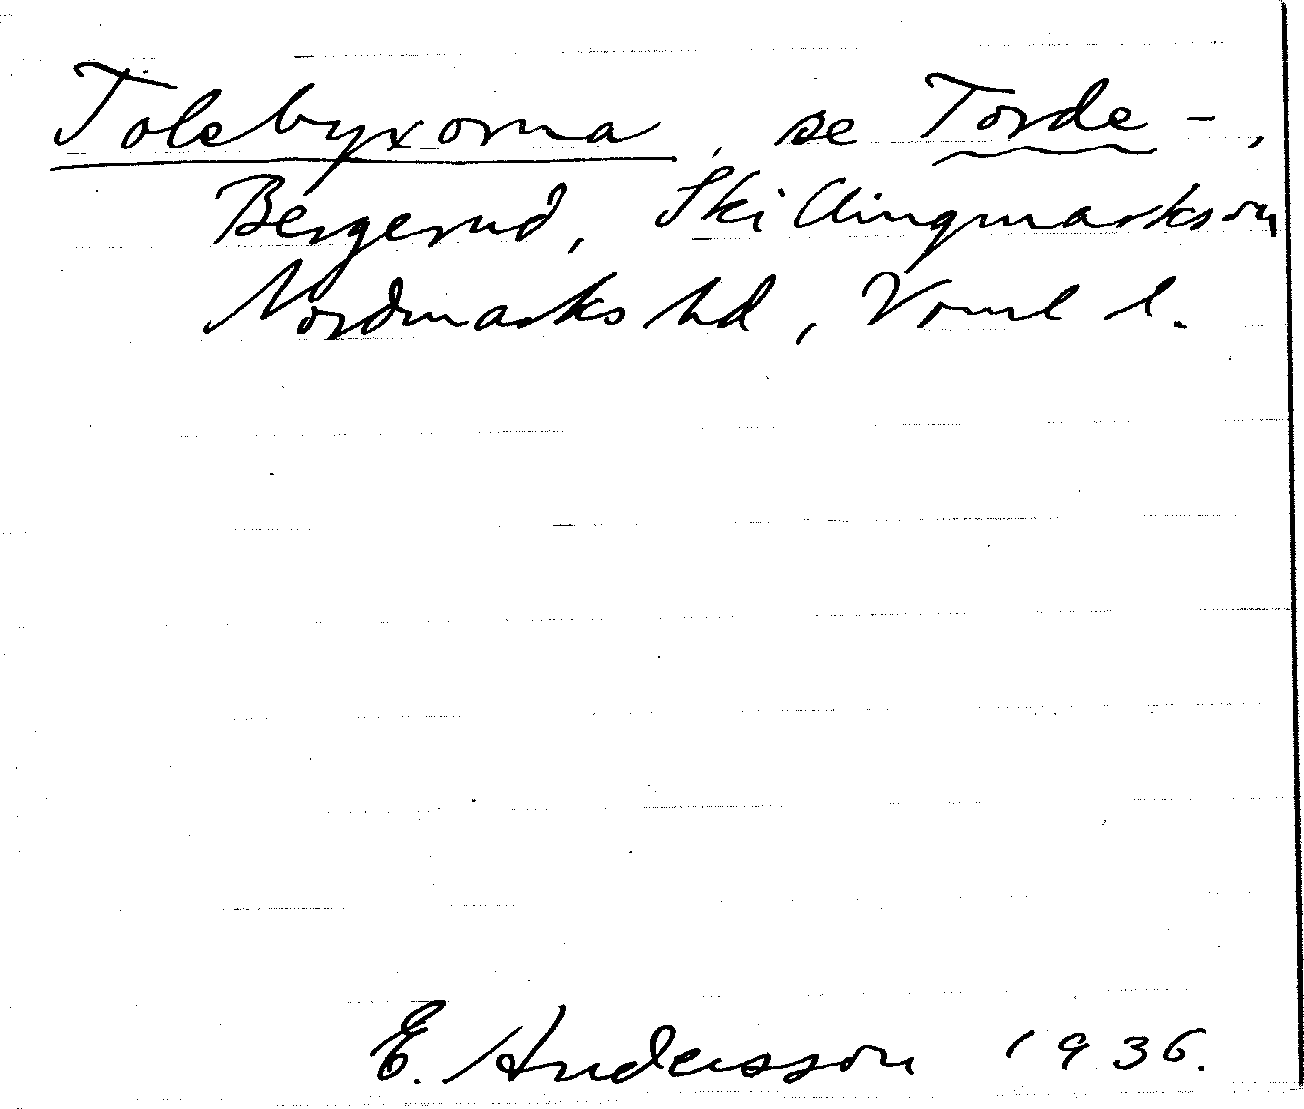 Tolebyxorna, se Torde-,
Bergerud, Skillingmarks sn
Nordmarks hd, Vrml l.
E. Andersson 1936.